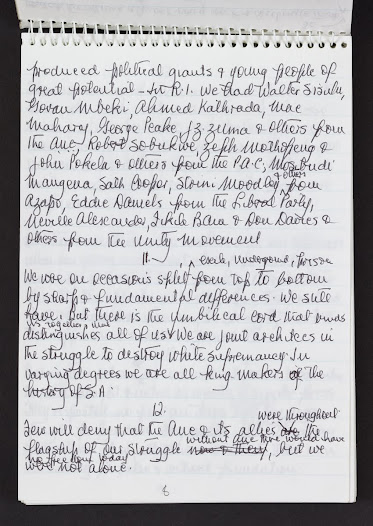 produced political giants & young people of
great potential - In R.I. we had Walter Sisulu,
Govan Mbeki, Ahmed Kathrada, Mac
Maharaj, George Peake, JZ Zuma & others from
the ANC; Robert Sobukwe, Zeph Mothopeng &
John Pokela & others from the P.A.C;
Mangena, Sath Cooper, Strini Moodley & others from
Azapo, Eddie Daniels from the Liberal Party,
Neville Alexander, Fikile Bam & Don Davis &
others from the Unity Movement
11
We were on occasions split from top to bottom
by sharp & fundamental differences. We still
have, but there is the umbilical cord that binds
us together, that
distinguishes all of us. We are joint architects in
the struggle to destroy white supremacy. In
varying degrees we are all king makers of the
history of S.A.
12
were throughout
Few will deny that the ANC & its allies are the
without ANC there would have
flagship of our struggle now & then, but we
no freedom today
were not alone.
8